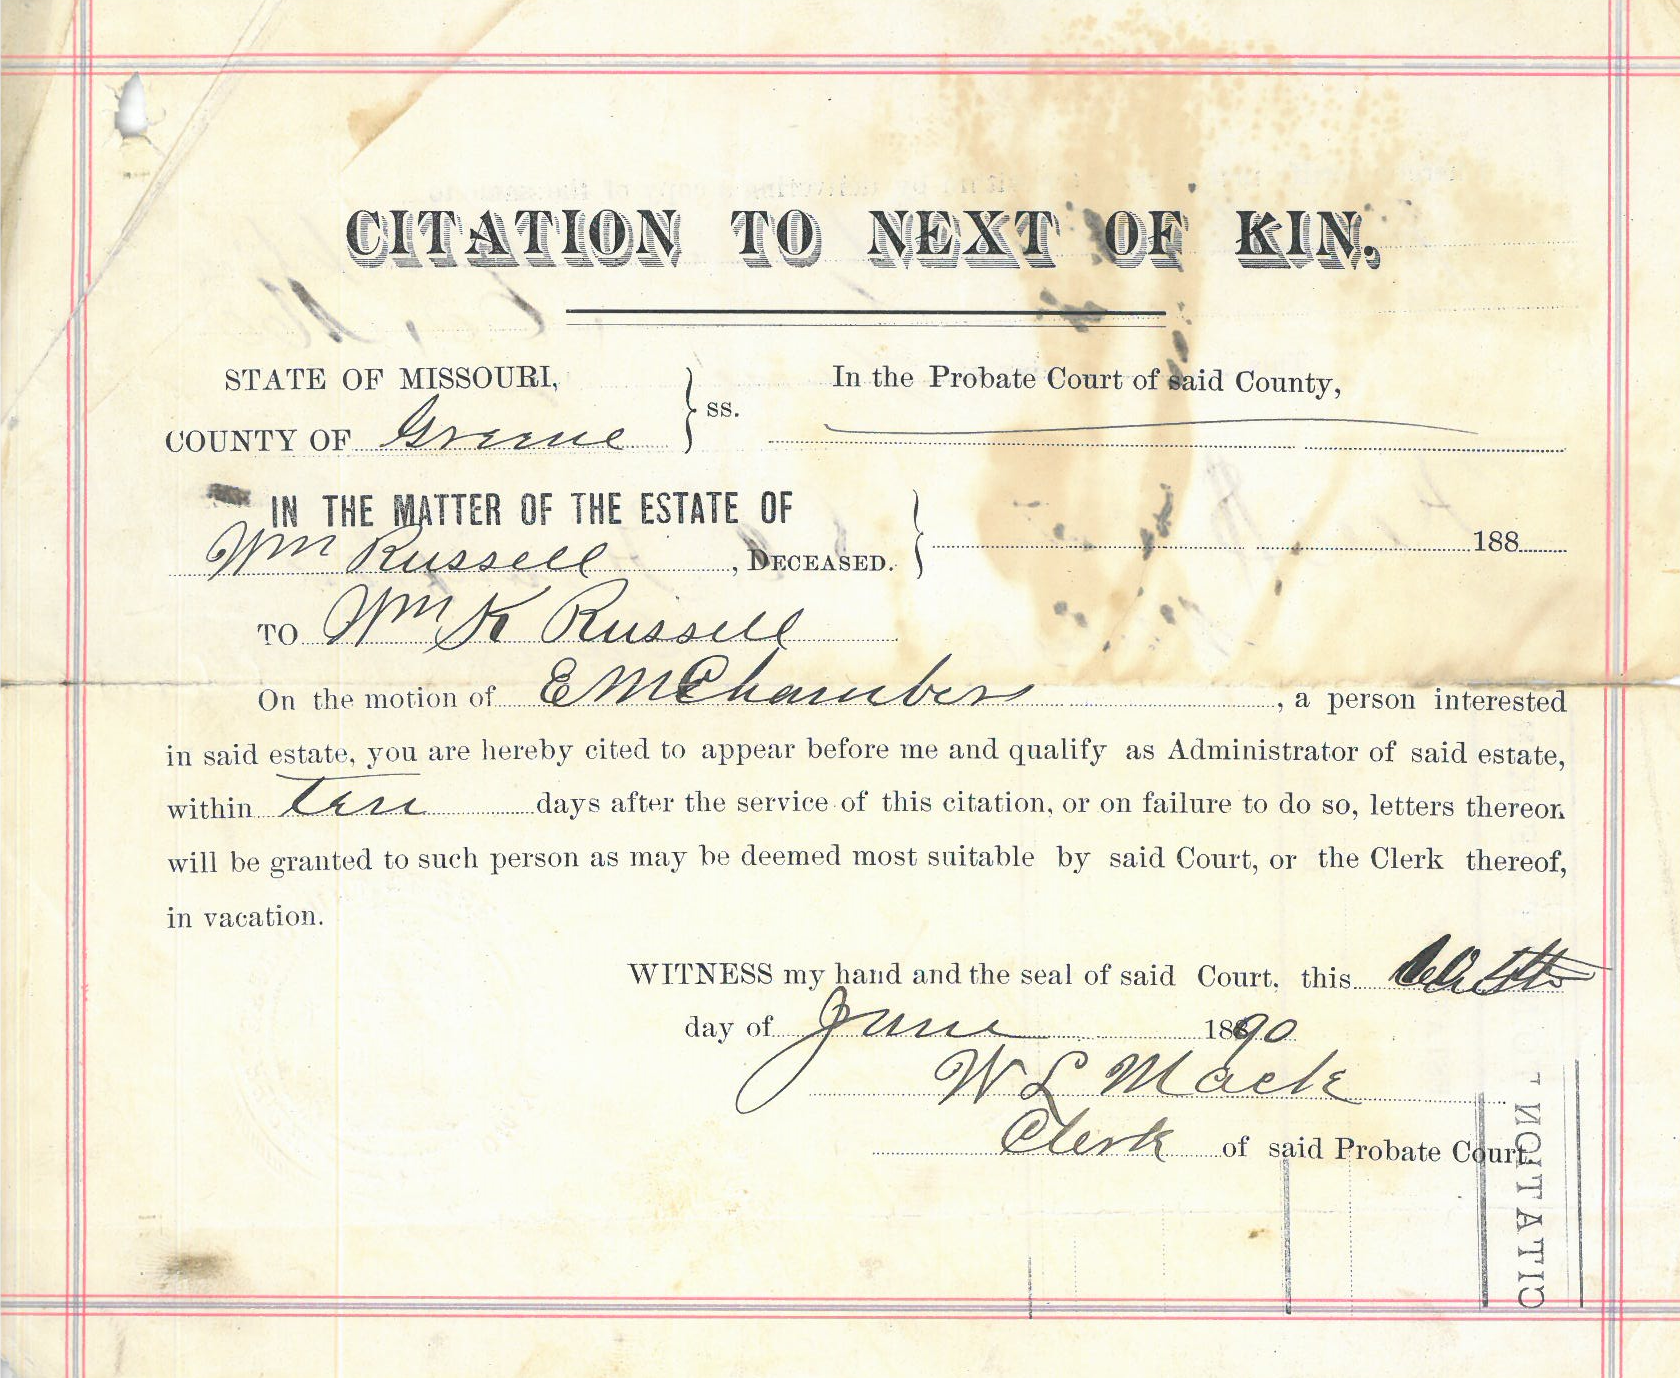 CITATION TO NEXT OF KIN.
STATE OF MISSOURI,
COUNTY OF Greene
ss.
In the Probate Court of said County,
IN THE MATTER OF THE ESTATE OF
Wm Russell, DECEASED.
188
TO Wm K Russell
On the motion of E M Chambers, a person interested
in said estate, you are hereby cited to appear before me and qualify as Administrator of said estate,
within Ten days after the service of this citation, or on failure to do so, letters thereon
will be granted to such person as may be deemed most suitable by said Court, or the Clerk thereof,
in vacation.
WITNESS my hand and the seal of said Court, this
day of June 1890
W L Mack
Clerk of said Probate Court.
CITATION T